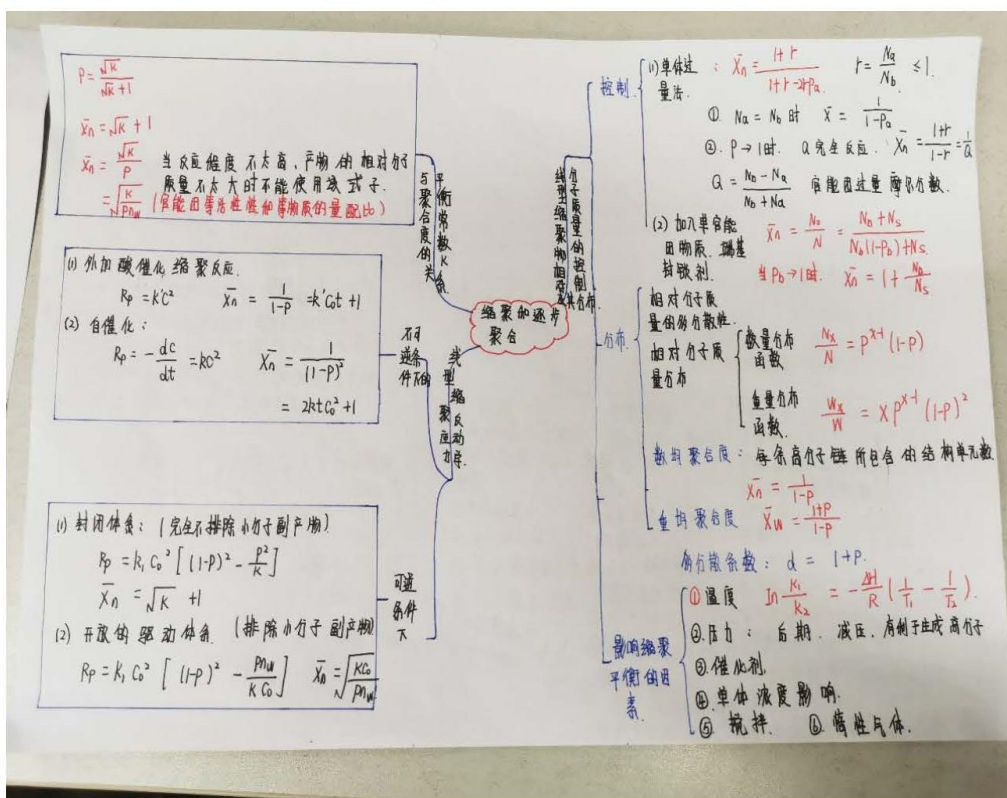 缩聚和逐步
聚合
平衡常数K
与聚合度的关系
P = √K / (√K + 1)
X̄n = √K + 1
X̄n = √K / P 当反应程度不太高，产物的相对分子
质量不太大时不能使用该式子.
= √(K / Pnw) (官能团等活性性和等物质的量配比)
线型缩聚反应动力学
不可逆条件下的
(1) 外加酸催化缩聚反应.
Rp = k'C² X̄n = 1/(1-P) = k'C₀t + 1
(2) 自催化：
Rp = -dc/dt = kC² X̄n = 1/(1-P)²
= 2ktC₀² + 1
可逆条件下
(1) 封闭体系：(完全不排除小分子副产物)
Rp = k₁C₀² [(1-P)² - P²/K]
X̄n = √K + 1
(2) 开放的驱动体系. (排除小分子副产物)
Rp = K₁C₀² [(1-P)² - Pnw/(KC₀)] X̄n = √(KC₀/Pnw)
线型缩聚物相对
分子质量的控制
及其分布
控制
(1) 单体过量法. : X̄n = (1+r)/(1+r-2rPa) r = Na/Nb ≤ 1.
①. Na = Nb 时 X̄ = 1/(1-Pa)
②. P→1时. a完全反应. X̄n = (1+r)/(1-r) = 1/Q
Q = (Nb-Na)/(Nb+Na) 官能团过量摩尔分数.
(2) 加入单官能
团物质. 端基
封锁剂. X̄n = N₀/N = (Nb+Ns)/(Nb(1-Pb)+Ns)
当Pb→1时. X̄n = 1 + Nb/Ns
分布.
相对分子质
量的多分散性.
相对分子质
量分布
数量分布
函数 Nx/N = P^(x-1) (1-P)
重量分布
函数. Wx/W = xP^(x-1) (1-P)²
数均聚合度：每条高分子链所包含的结构单元数
X̄n = 1/(1-P)
重均聚合度 X̄w = (1+P)/(1-P)
多分散系数：d = 1+P.
影响缩聚
平衡的因
素.
① 温度 ln K₁/K₂ = -ΔH/R (1/T₁ - 1/T₂).
②. 压力：后期. 减压，有利于生成高分子
③. 催化剂.
④. 单体浓度影响.
⑤ 搅拌. ⑥ 惰性气体.